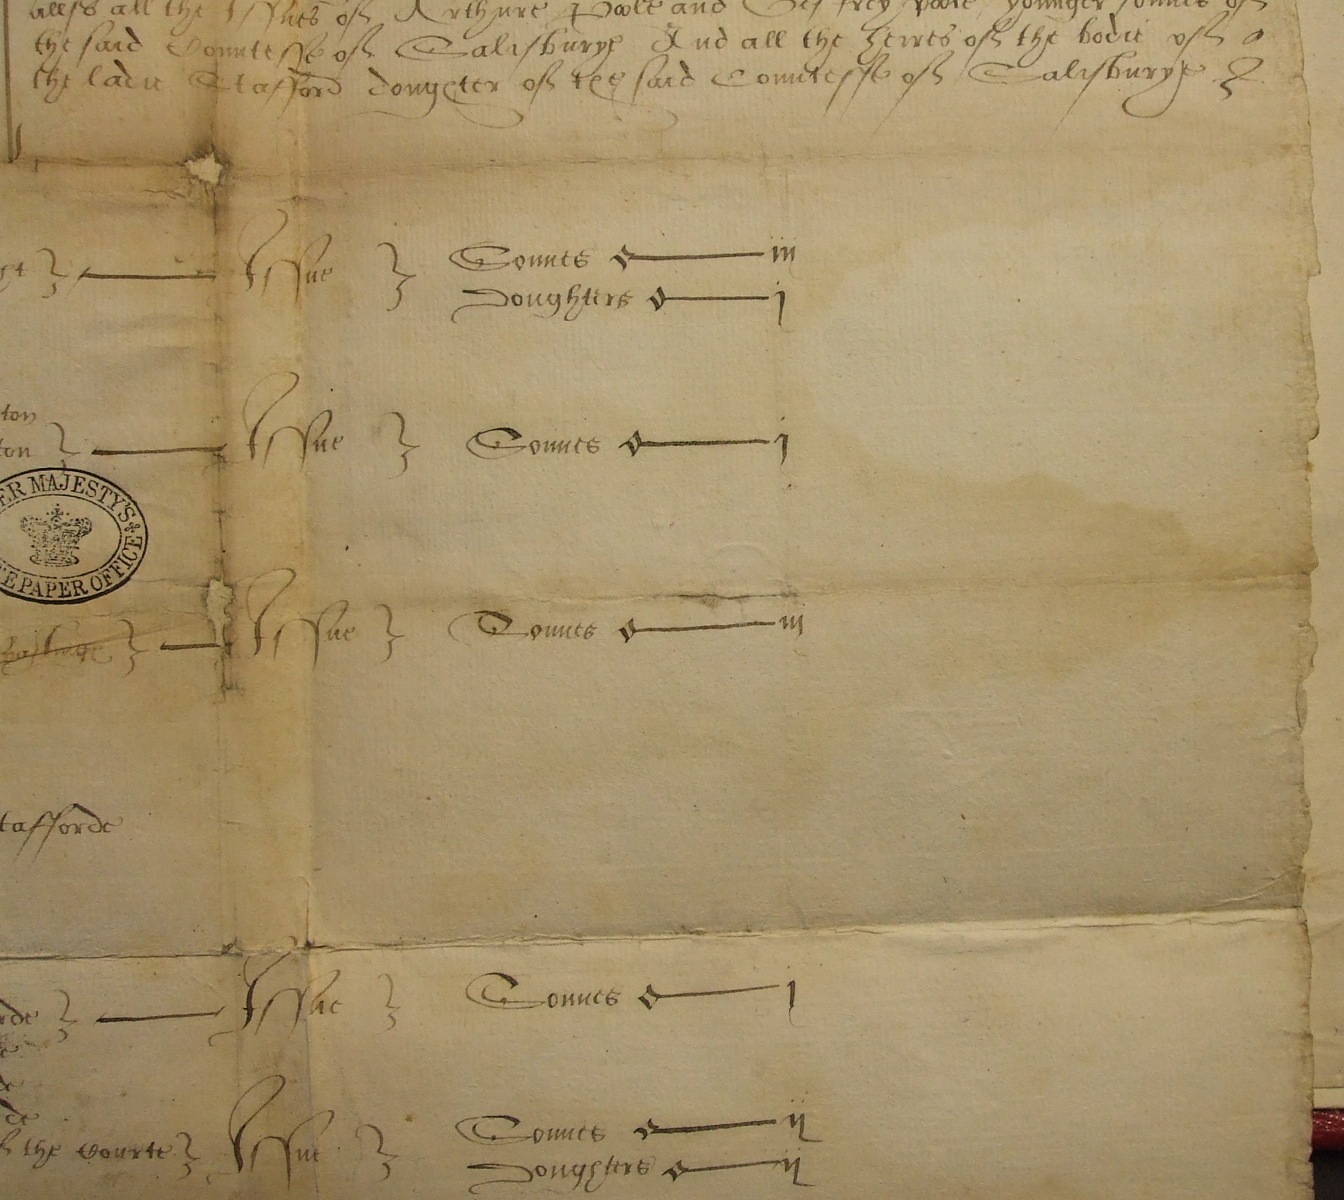 all the Issues of Arthure Poole and Geffrey Poole younger sonnes of
the said Countesse of Salisburye And all the heires of the bodie of
the ladie Stafford doughter of the said Countesse of Salisburye
Issue Sonnes iij
Doughters j
ton
ton Issue Sonnes j
ER MAJESTY'S
E PAPER OFFICE
Issue Sonnes iij
tafforde
rde Issue Sonnes j
the Courte Issue Sonnes ij
Doughters ij